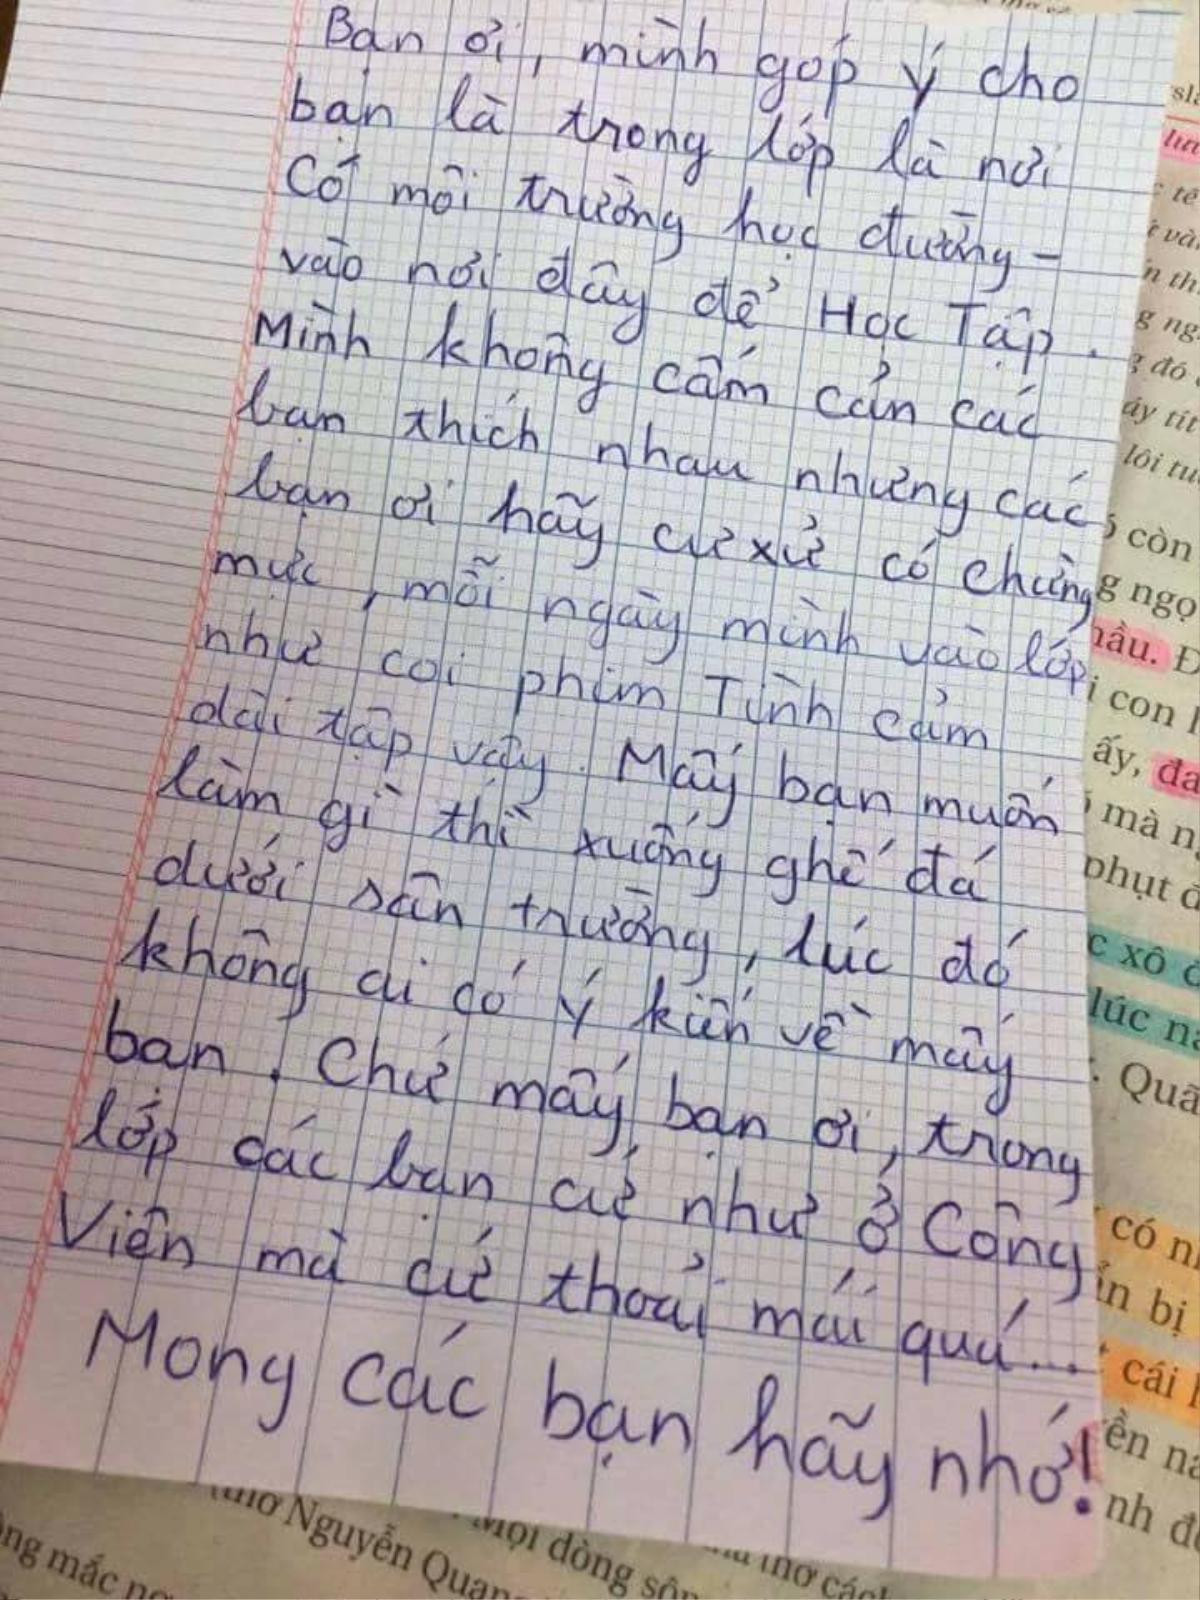 Bạn ơi, mình góp ý cho
bạn là trong lớp là nơi
Có môi trường học đường -
vào nơi đây để Học Tập.
Mình không cấm cản các
bạn thích nhau nhưng các
bạn ơi hãy cư xử có chừng
mực, mỗi ngày mình vào lớp
như coi phim Tình cảm
dài tập vậy. Mấy bạn muốn
làm gì thì xuống ghế đá
dưới sân trường, lúc đó
không ai có ý kiến về mấy
bạn. Chứ mấy bạn ơi, trong
lớp các bạn cứ như ở Công
Viên mà cứ thoải mái quá...
Mong các bạn hãy nhớ!
tế
g ng
đó
lôi tu
còn
g ngọ
hầu. Đ
i con
ấy, đa
mà n
phụt đ
c xô đ
lúc na
: Quã
có n
ín bị
cái
ền na
nh đ
thơ Nguyễn Quang
Mọi dòng sôn
thơ cách
ng mắc nợ